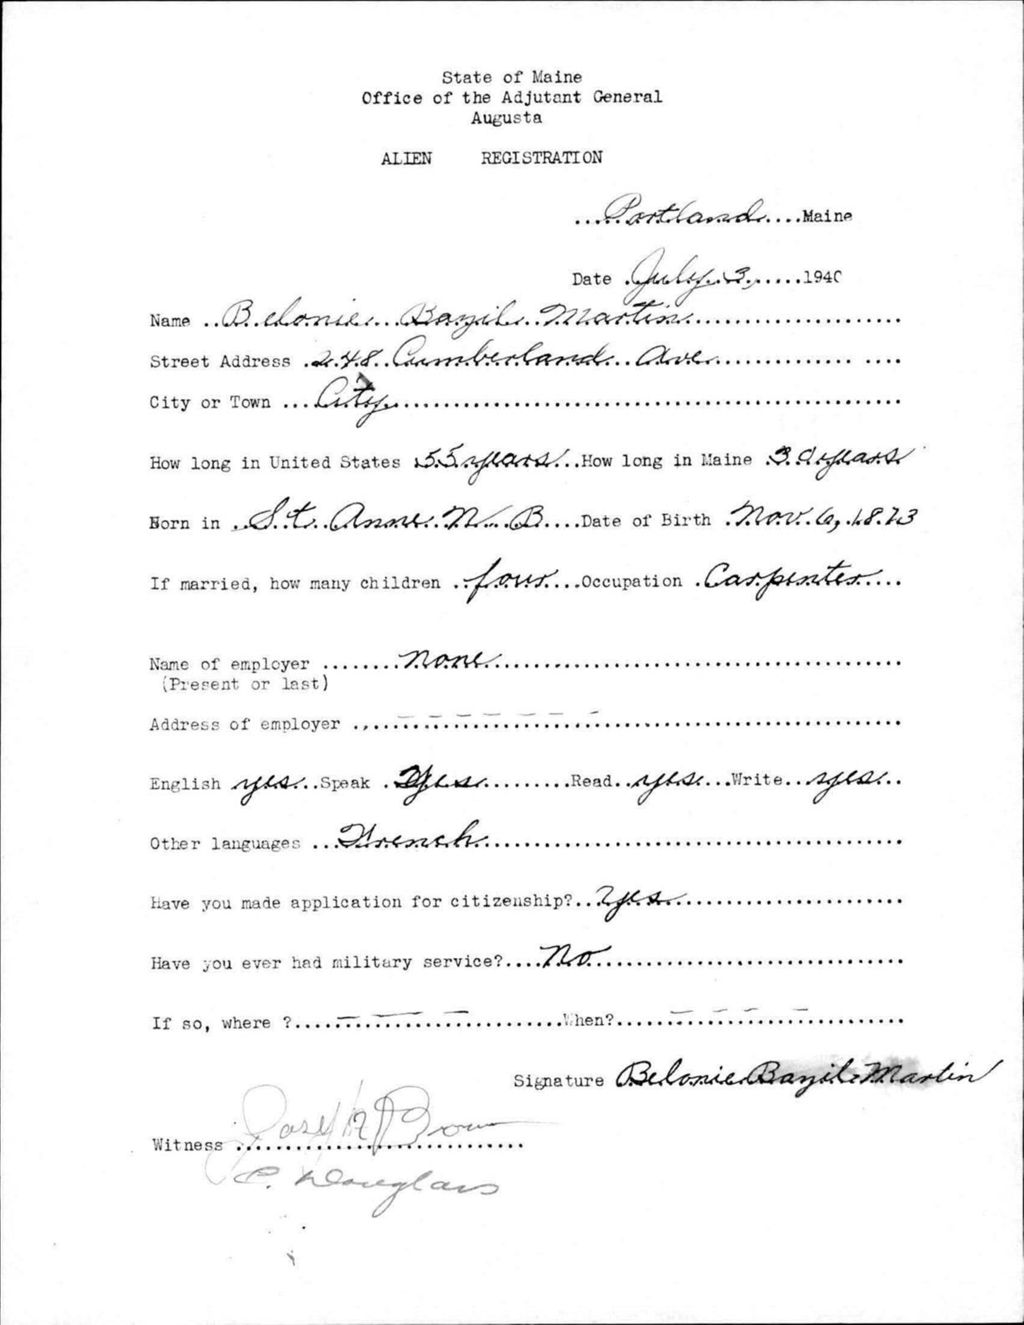 State of Maine
Office of the Adjutant General
Augusta
ALIEN REGISTRATION
...Portland....Maine
Date .July.3,.....1940
Name ..Belonie...Bazil..Martin.....................
Street Address .248.Cumberland..Ave.............. ....
City or Town ...City.......................................
How long in United States .55 years...How long in Maine .30 years
Born in ..St. Anne. N. B....Date of Birth .Nov. 6, 1873
If married, how many children ..four...Occupation .Carpenter...
Name of employer ........none.................................
(Present or last)
Address of employer ..,.... – – – – – – – ..............................
English yes...Speak .Yes.........Read..yes...Write..yes..
Other languages ...French......................................
Have you made application for citizenship?..Yes....................
Have you ever had military service?....No...........................
If so, where ?....– – – –.........................When?.....– – – –.........
Signature Belonie Bazil Martin
Witness Brown
C. Douglass